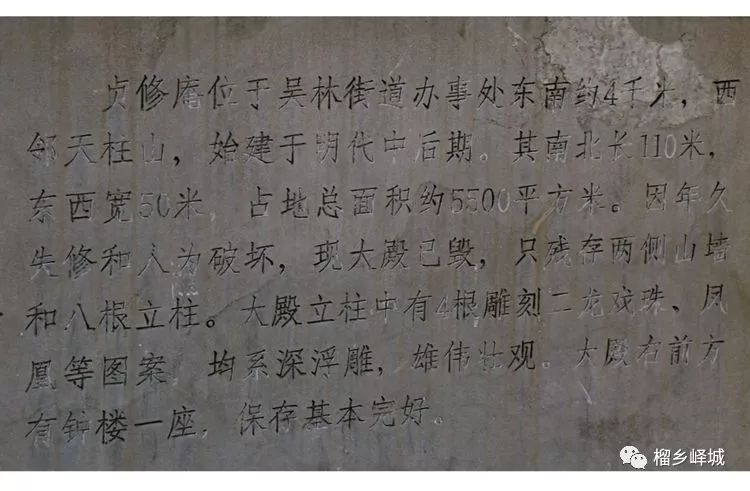 贞修庵位于吴林街道办事处东南约4千米，西
邻天柱山，始建于明代中后期。其南北长110米，
东西宽50米，占地总面积约5500平方米。因年久
失修和人为破坏，现大殿已毁，只残存两侧山墙
和八根立柱。大殿立柱中有4根雕刻二龙戏珠、凤
凰等图案，均系深浮雕，雄伟壮观。大殿右前方
有钟楼一座，保存基本完好。
榴乡峄城